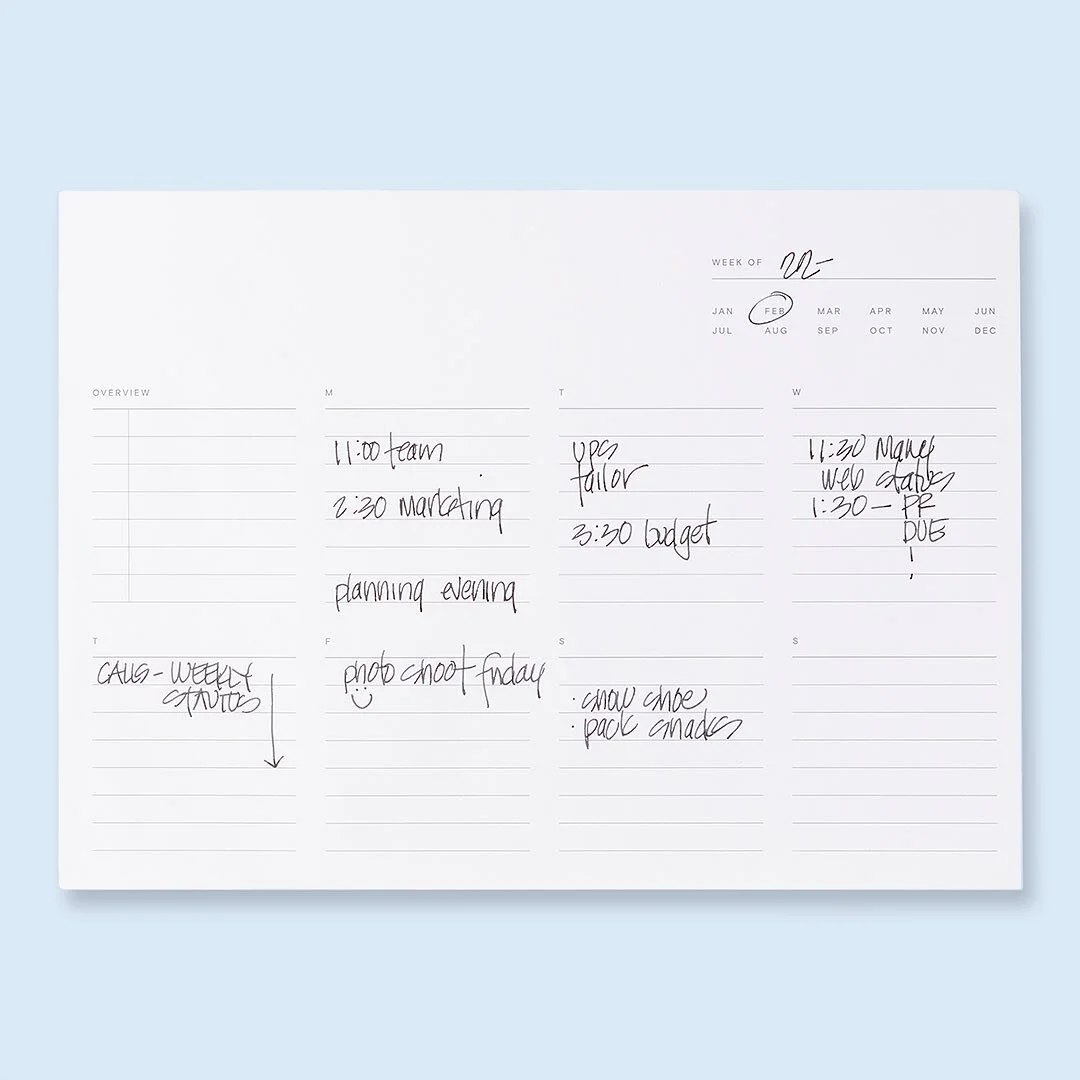 WEEK OF 22-
JAN FEB MAR APR MAY JUN
JUL AUG SEP OCT NOV DEC
OVERVIEW
M
11:00 team
2:30 marketing
planning evening
T
ups
tailor
3:30 budget
W
11:30
web status
1:30 - PR
DUE
!
T
CALLS - WEEKLY
F
photo shoot friday
S
· snow shoe
· pack snacks
S